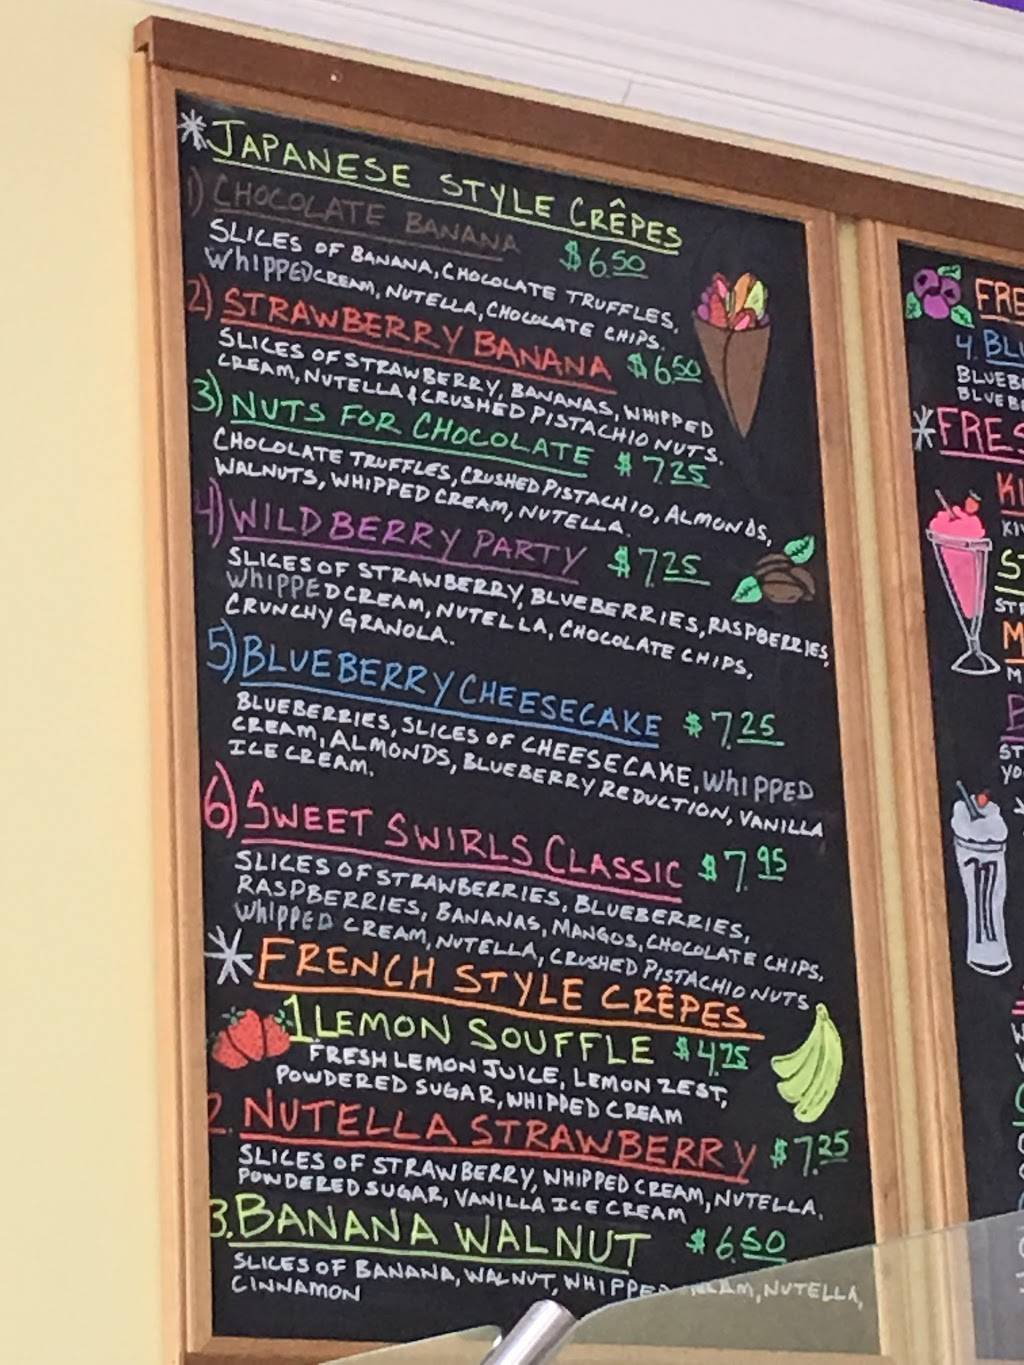 *JAPANESE STYLE CRÊPES
1) CHOCOLATE BANANA $6.50
SLICES OF BANANA, CHOCOLATE TRUFFLES,
WHIPPED CREAM, NUTELLA, CHOCOLATE CHIPS.
2) STRAWBERRY BANANA $6.50
SLICES OF STRAWBERRY, BANANAS, WHIPPED
CREAM, NUTELLA & CRUSHED PISTACHIO NUTS.
3) NUTS FOR CHOCOLATE $7.25
CHOCOLATE TRUFFLES, CRUSHED PISTACHIO, ALMONDS,
WALNUTS, WHIPPED CREAM, NUTELLA.
4) WILD BERRY PARTY $7.25
SLICES OF STRAWBERRY, BLUEBERRIES, RASPBERRIES,
WHIPPED CREAM, NUTELLA, CHOCOLATE CHIPS,
CRUNCHY GRANOLA.
5) BLUEBERRY CHEESECAKE $7.25
BLUEBERRIES, SLICES OF CHEESECAKE, WHIPPED
CREAM, ALMONDS, BLUEBERRY REDUCTION, VANILLA
ICE CREAM.
6) SWEET SWIRLS CLASSIC $7.95
SLICES OF STRAWBERRIES, BLUEBERRIES,
RASPBERRIES, BANANAS, MANGOS, CHOCOLATE CHIPS,
WHIPPED CREAM, NUTELLA, CRUSHED PISTACHIO NUTS
*FRENCH STYLE CRÊPES
1. LEMON SOUFFLE $4.75
FRESH LEMON JUICE, LEMON ZEST,
POWDERED SUGAR, WHIPPED CREAM
2. NUTELLA STRAWBERRY $7.25
SLICES OF STRAWBERRY, WHIPPED CREAM, NUTELLA.
POWDERED SUGAR, VANILLA ICE CREAM
3. BANANA WALNUT $6.50
SLICES OF BANANA, WALNUT, WHIPPED CREAM, NUTELLA,
CINNAMON
FRE
4. BLU
BLUEB
BLUEBE
*FRES
KI
KI
ST
STR
M
M
ST
YO